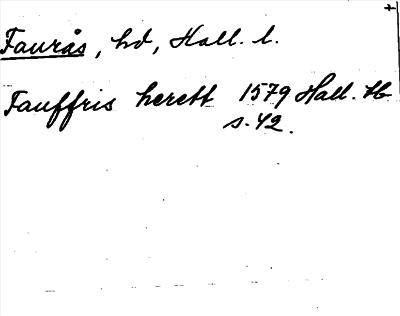 Faurås, hd, Hall. l.
Fauffris herett 1579 Hall. tb
s. 42.